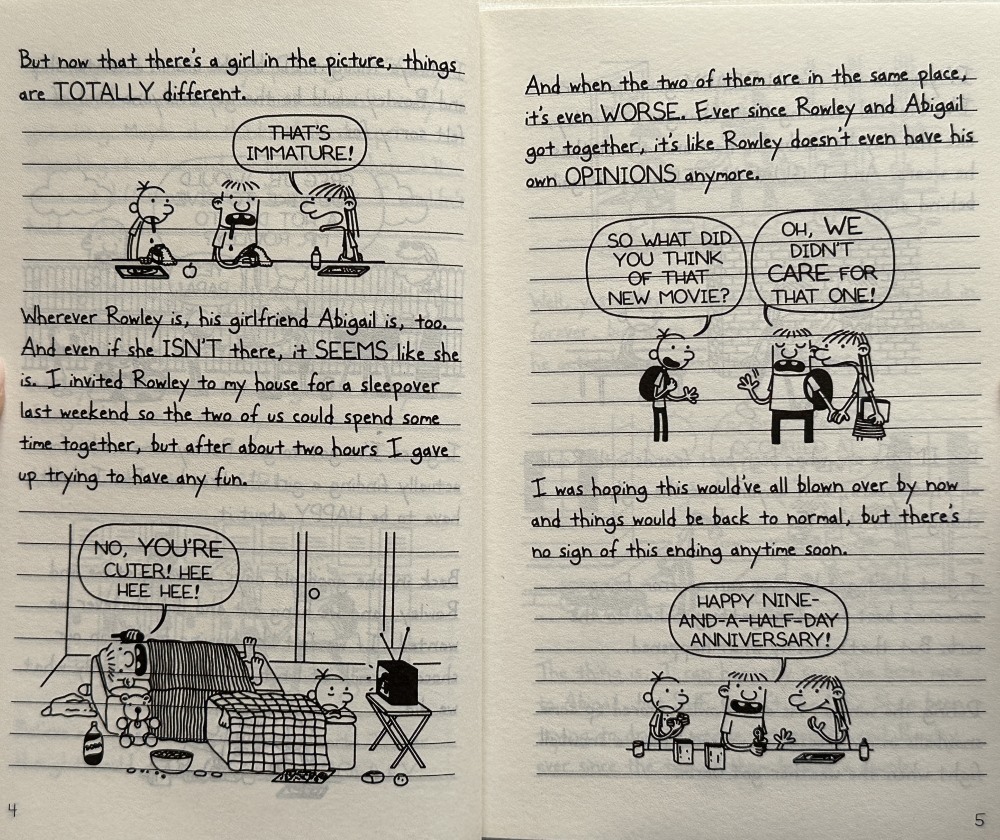 But now that there's a girl in the picture, things
are TOTALLY different.
THAT'S
IMMATURE!
Wherever Rowley is, his girlfriend Abigail is, too.
And even if she ISN'T there, it SEEMS like she
is. I invited Rowley to my house for a sleepover
last weekend so the two of us could spend some
time together, but after about two hours I gave
up trying to have any fun.
NO, YOU'RE
CUTER! HEE
HEE HEE!
4
And when the two of them are in the same place,
it's even WORSE. Ever since Rowley and Abigail
got together, it's like Rowley doesn't even have his
own OPINIONS anymore.
SO WHAT DID
YOU THINK
OF THAT
NEW MOVIE?
OH, WE
DIDN'T
CARE FOR
THAT ONE!
I was hoping this would've all blown over by now
and things would be back to normal, but there's
no sign of this ending anytime soon.
HAPPY NINE-
AND-A-HALF-DAY
ANNIVERSARY!
5